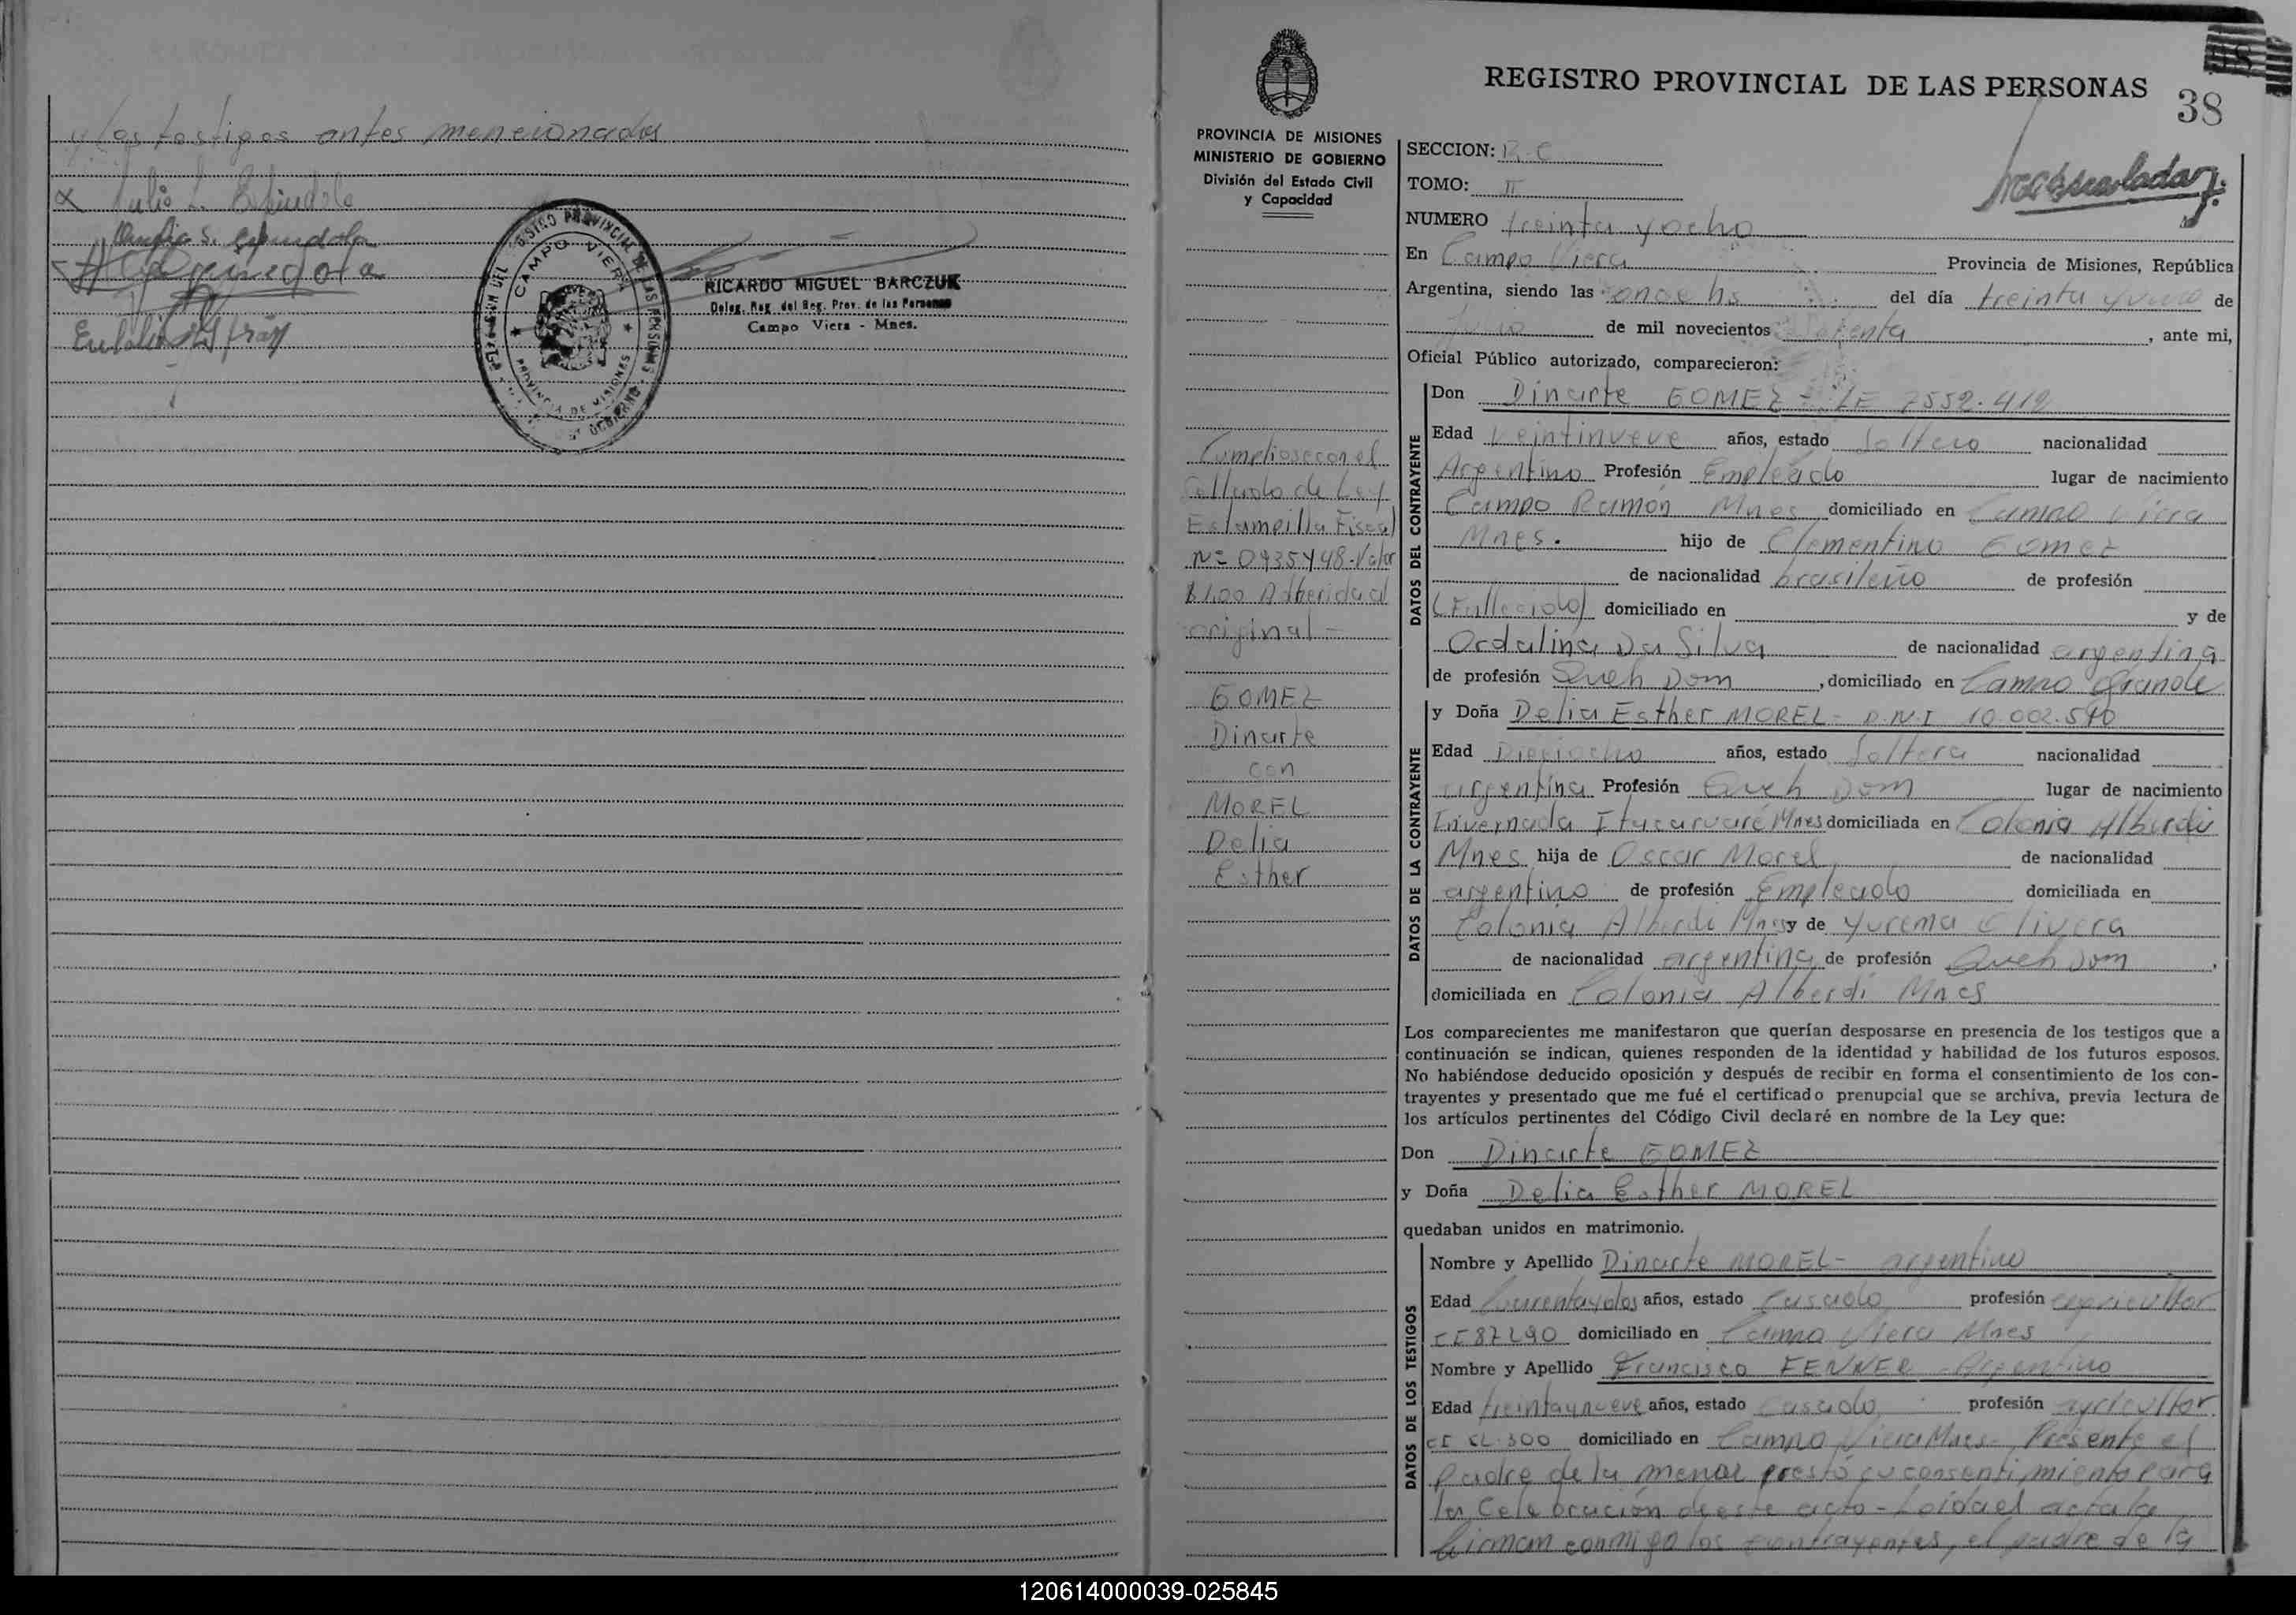 y los testigos antes mencionados
Julio S. Espindola
Espindola
RICARDO MIGUEL BARCZUK
Deleg. Reg. del Reg. Prov. de las Personas
Campo Viera - Mnes.
CAMPO VIERA
PROVINCIA DE MISIONES
PROVINCIA DE MISIONES
MINISTERIO DE GOBIERNO
División del Estado Civil
y Capacidad
Cumpliose con el
Sellado de Ley
Estampilla Fiscal
Nº 0935448-Valor
$1,00 Adherida al
original-
GOMEZ
Dinarte
con
MOREL
Delia
Esther
REGISTRO PROVINCIAL DE LAS PERSONAS
38
SECCION: R.C
TOMO: II
NUMERO treinta y ocho
En Campo Viera Provincia de Misiones, República
Argentina, siendo las once hs del día treinta y uno de
de mil novecientos setenta, ante mi,
Oficial Público autorizado, comparecieron:
DATOS DEL CONTRAYENTE
Don Dinarte GOMEZ - LE 7552.412
Edad Veintinueve años, estado Soltero nacionalidad
Argentino Profesión Empleado lugar de nacimiento
Campo Ramón Mnes domiciliado en Campo Viera
Mnes. hijo de Clementino Gomez
de nacionalidad brasileño de profesión
(Fallecido) domiciliado en y de
Ordalina Da Silva de nacionalidad argentina
de profesión Queh Dom, domiciliado en Campo Grande
DATOS DE LA CONTRAYENTE
y Doña Delia Esther MOREL - D.N.I 10.002.590
Edad Dieciocho años, estado Soltera nacionalidad
argentina Profesión Queh Dom lugar de nacimiento
Invernada Itacaruaré Mnes domiciliada en Colonia Alberdi
Mnes hija de Oscar Morel de nacionalidad
argentino de profesión Empleado domiciliada en
Colonia Alberdi Mnes y de Yurema Olivera
de nacionalidad argentina de profesión Queh Dom,
domiciliada en Colonia Alberdi Mnes
Los comparecientes me manifestaron que querían desposarse en presencia de los testigos que a
continuación se indican, quienes responden de la identidad y habilidad de los futuros esposos.
No habiéndose deducido oposición y después de recibir en forma el consentimiento de los con-
trayentes y presentado que me fué el certificado prenupcial que se archiva, previa lectura de
los artículos pertinentes del Código Civil declaré en nombre de la Ley que:
Don Dinarte GOMEZ
y Doña Delia Esther MOREL
quedaban unidos en matrimonio.
DATOS DE LOS TESTIGOS
Nombre y Apellido Dinarte MOREL - argentino
Edad Cuarenta y dos años, estado Casado profesión agricultor
CI 87290 domiciliado en Campo Viera Mnes
Nombre y Apellido Francisco FENNER - Argentino
Edad treinta y nueve años, estado casado profesión agricultor
domiciliado en Campo Viera Mnes - Presente el
padre de la menor prestó su consentimiento para
la Celebración de este acto - Leída el acta la
firman conmigo los contrayentes, el padre de la
120614000039-025845